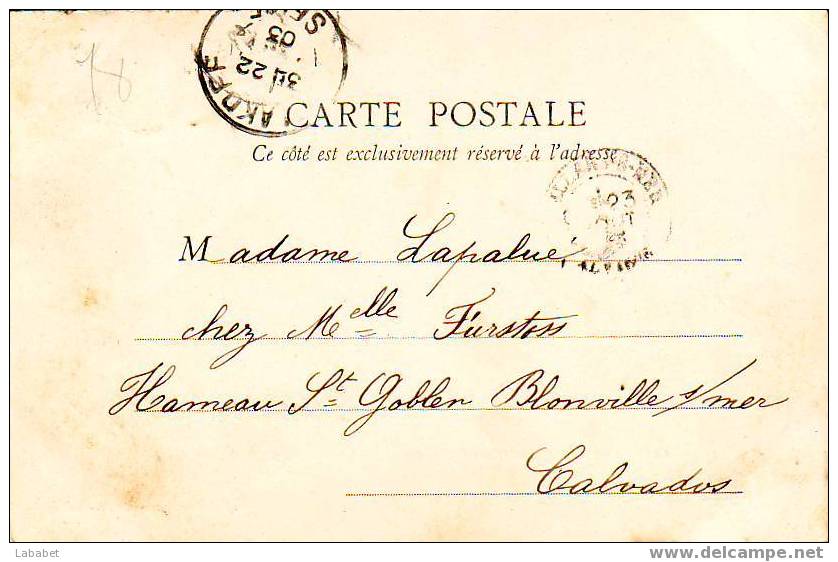 78
SEINE
03
22
3E
CARTE POSTALE
Ce côté est exclusivement réservé à l'adresse
23
Madame Lapalue
chez Melle Fürstoss
Hameau St Goblen Blonville s/mer
Calvados
Lababet
delcampe.net